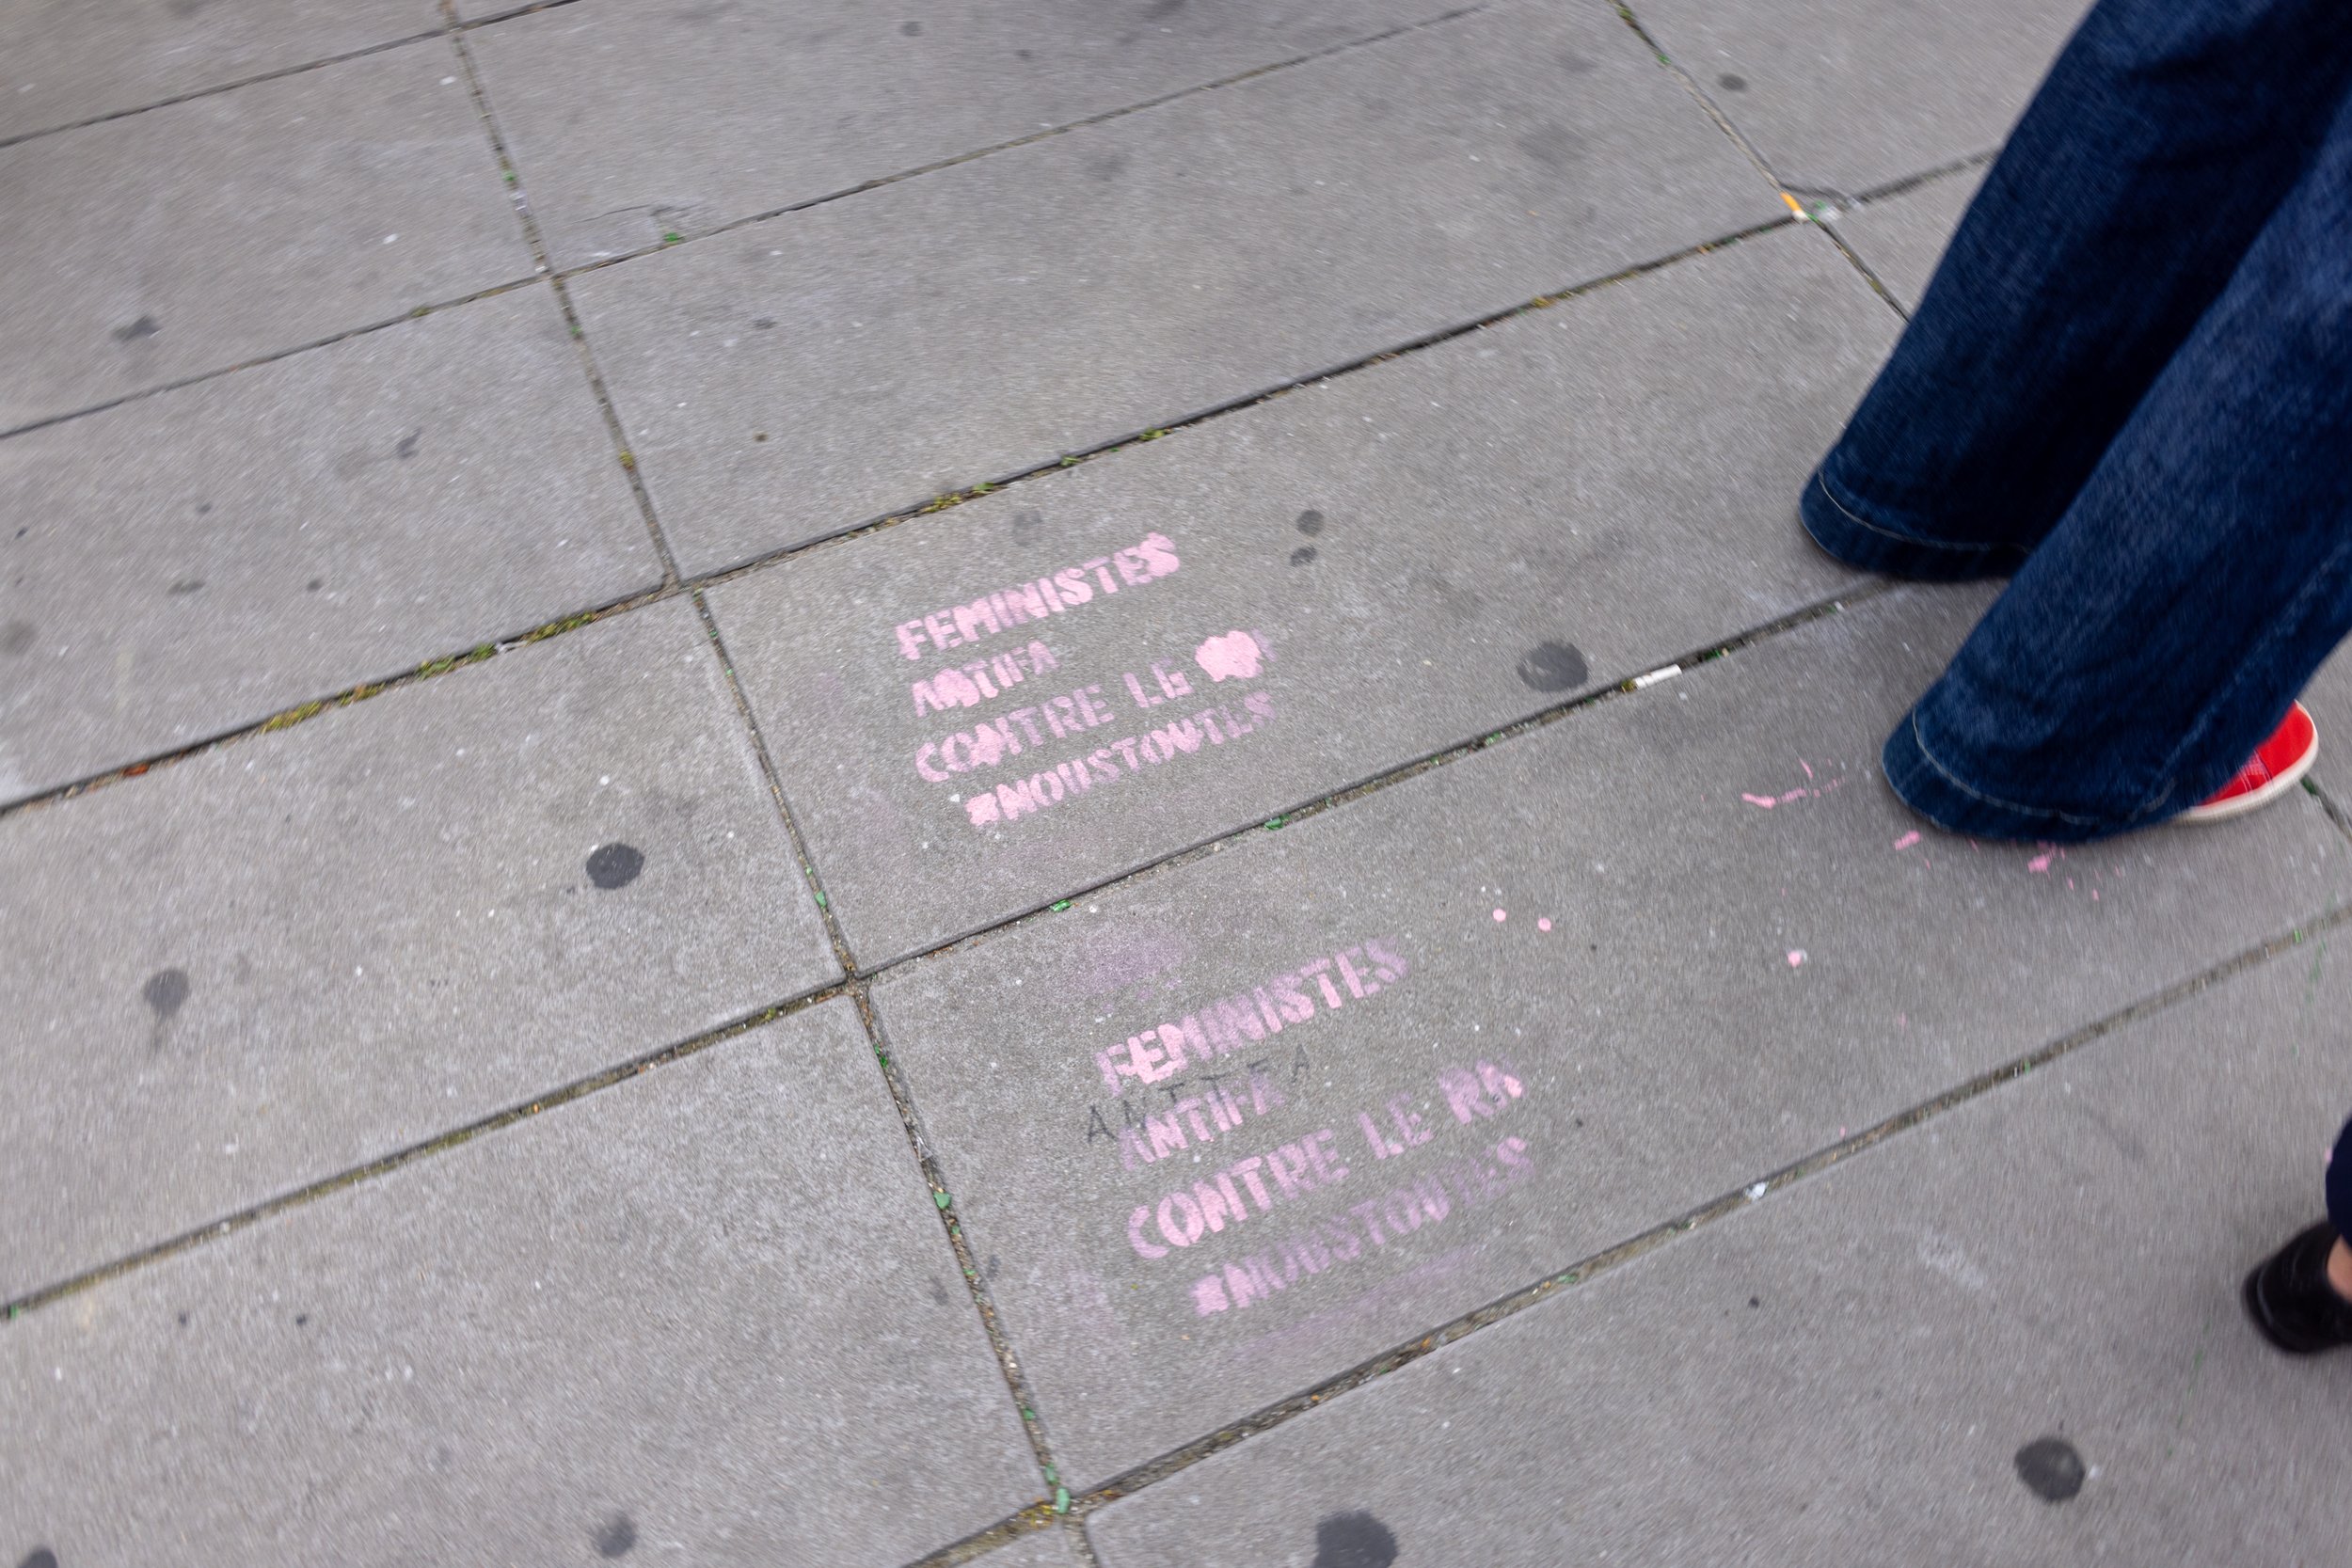 FEMINISTES
ANTIFA
CONTRE LE
#NOUSTOUTES
FEMINISTES
ANTIFA
ANTIFA
CONTRE LE RN
#NOUSTOUTES